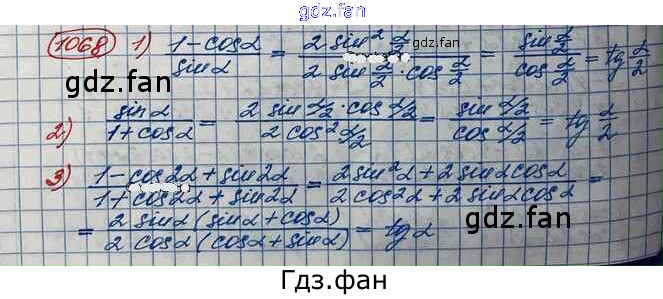 gdz.fan
1068 1) (1-cosα)/(sinα) = (2 sin² α/2)/(2 sin α/2 · cos α/2) = (sin α/2)/(cos α/2) = tg α/2
gdz.fan
gdz.fan
2) (sin α)/(1+cosα) = (2 sin α/2 · cos α/2)/(2 cos² α/2) = (sin α/2)/(cos α/2) = tg α/2
gdz.fan
3) (1-cos2α+sin2α)/(1+cos2α+sin2α) = (2sin²α+2sinαcosα)/(2cos²α+2sinαcosα) =
gdz.fan
= (2 sinα(sinα+cosα))/(2 cosα(cosα+sinα)) = tg α
gdz.fan
Гдз.фан